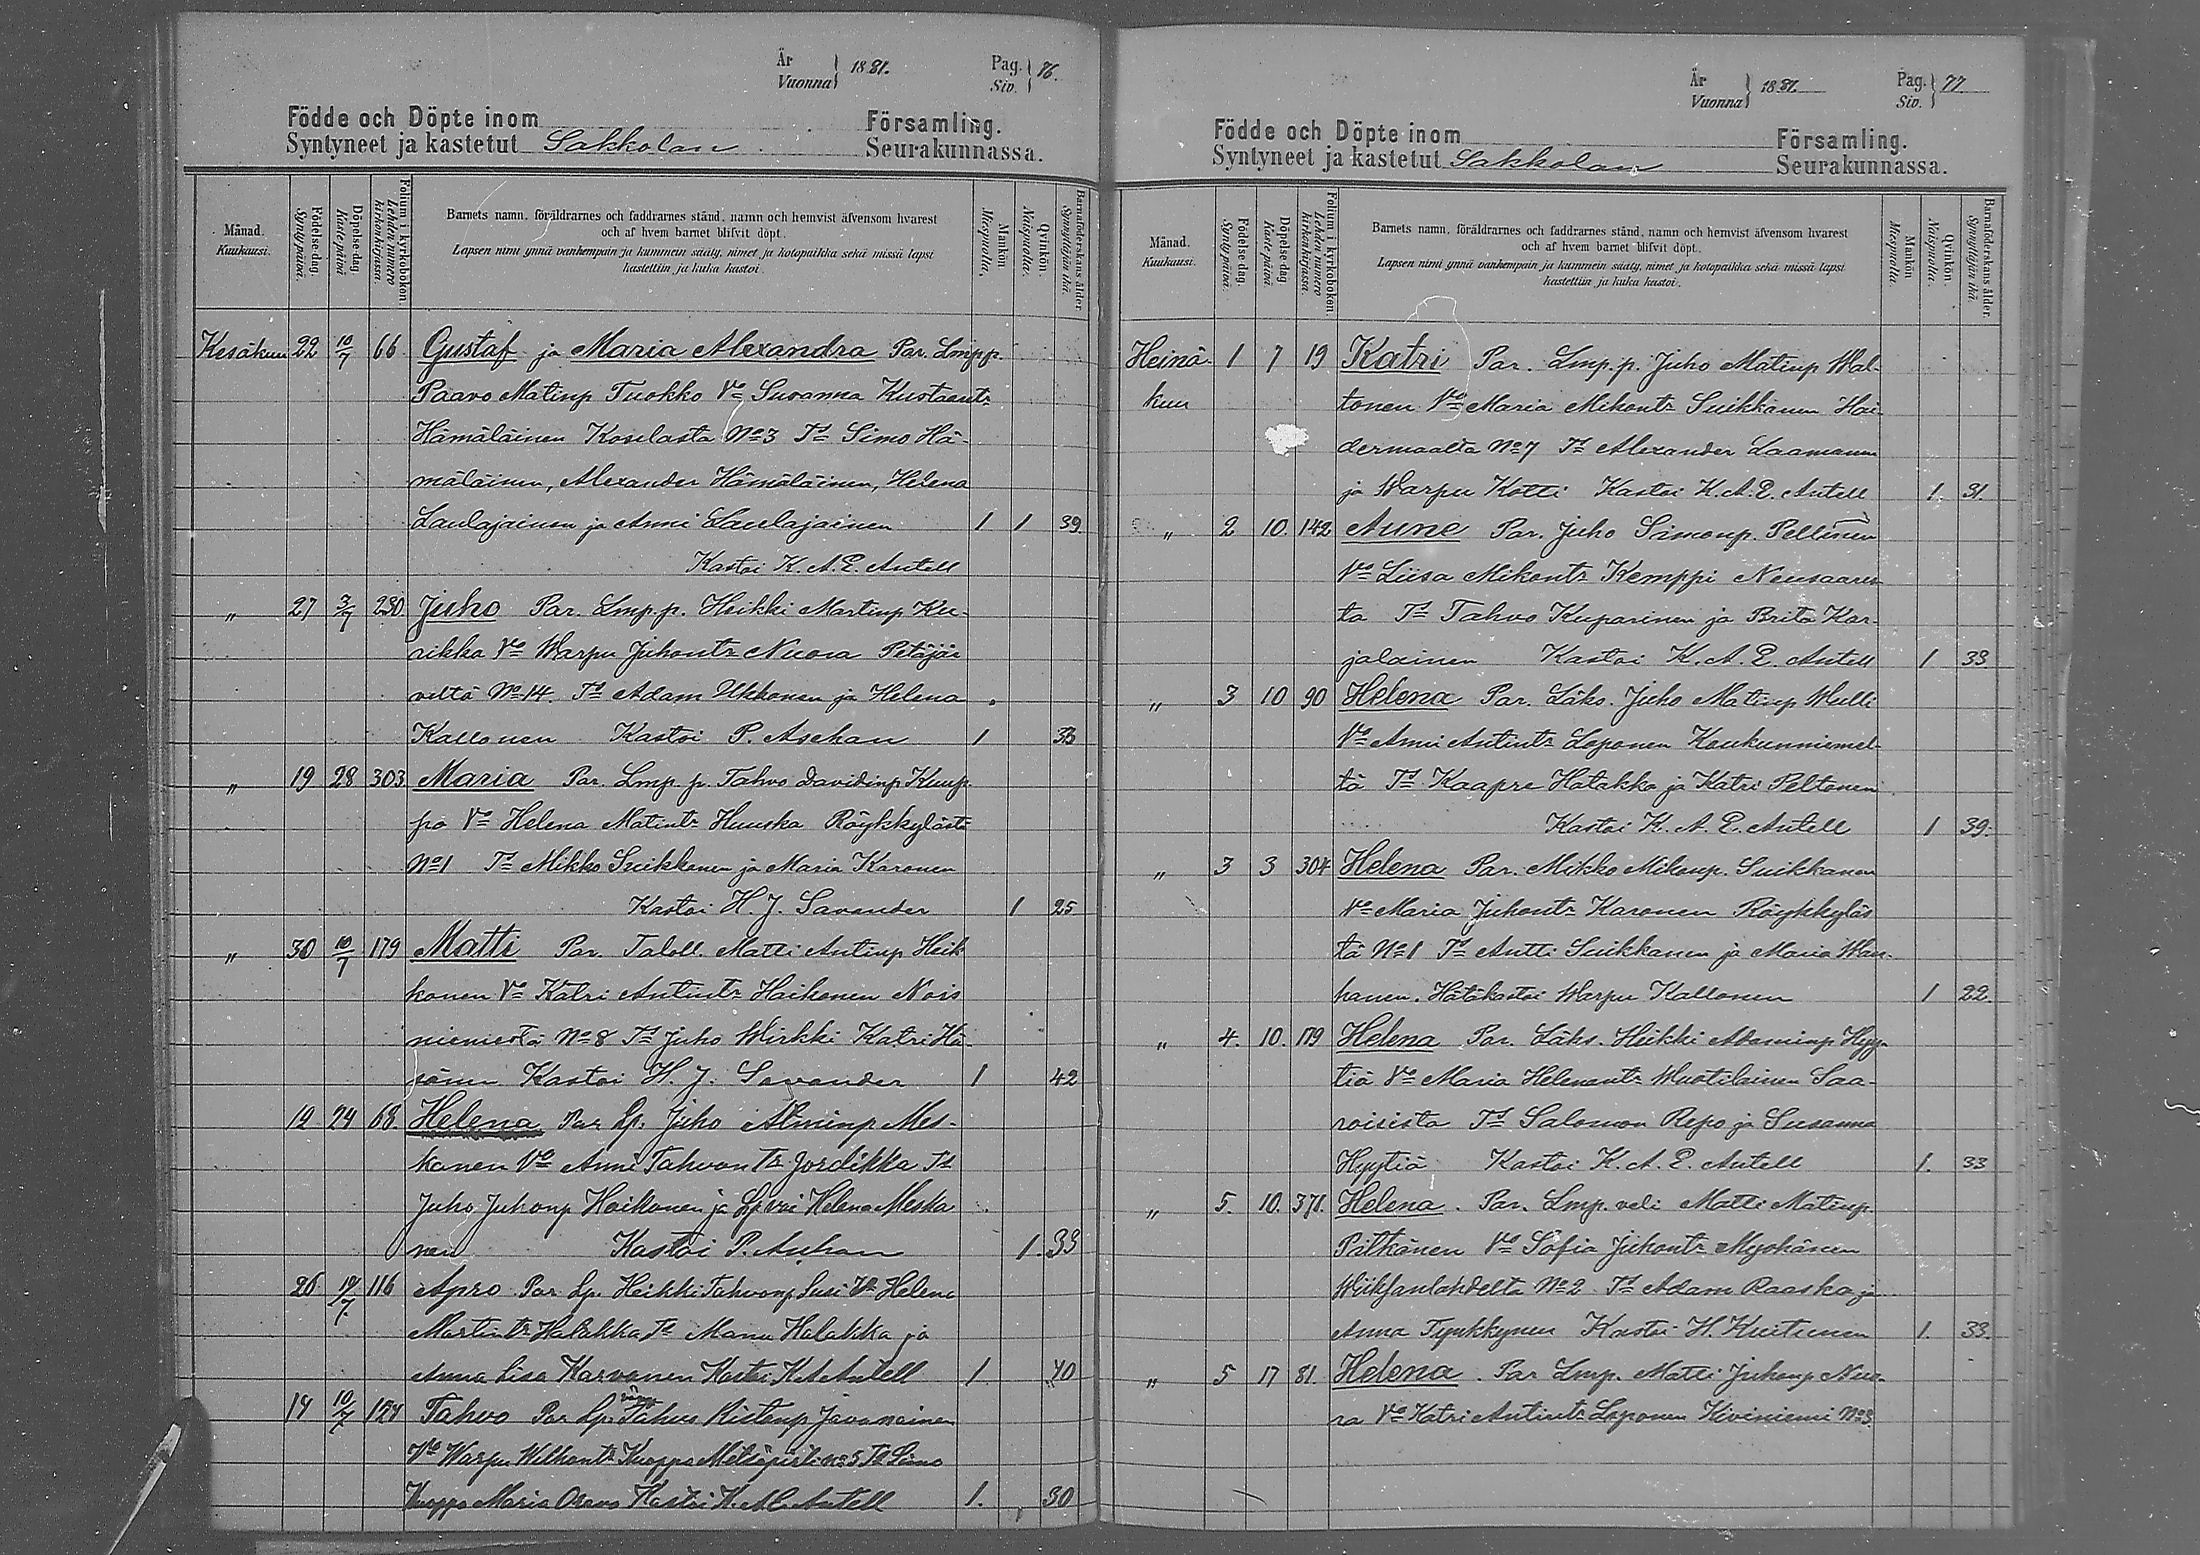 År
Vuonna 1881. Pag. Siv. 76.
Födde och Döpte inom Församling.
Syntyneet ja kastetut Sakkolan Seurakunnassa.
Månad. Kuukausi. Födelse-dag. Syntypäivä. Döpelse-dag. Kastepäivä. Folium i kyrkoboken. Lehden numero kirkonkirjassa.
Barnets namn, föräldrarnes och faddrarnes stånd, namn och hemvist äfvensom hvarest
och af hvem barnet blifvit döpt.
Lapsen nimi ynnä vanhempain ja kummein sääty, nimet ja kotopaikka sekä missä lapsi
kastettiin ja kuka kastoi.
Mankön. Miespuolia. Qvinkön. Naispuolia. Barnaföderskans ålder. Synnyttäjän ikä.
Kesäkuu 22 10/7 66 Gustaf ja Maria Alexandra Par. Lmp.p.
Paavo Matinp Tuokko Vo Susanna Kustaantr
Hämäläinen Koselasta No 3 Ts Simo Hä-
mäläinen, Alexander Hämäläinen, Helena
Laulajainen ja Anni Laulajainen 1 1 39.
Kastoi K. A. E. Antell
" 27 3/7 230. Juho Par. Lmp.p. Heikki Martinp Ku-
rikka Vo Warpu Juhontr Nuora Petäjä-
veltä No 14. Ts Adam Ukkonen ja Helena
Kallonen Kastoi P. Aschan 1 33
" 19 28 303 Maria Par. Lmp. p. Tahvo Davidinp Kuup-
pa Vo Helena Matintr Huuska Röykkylästä
No 1 Ts Mikko Suikkanen ja Maria Karonen
Kastoi H. J. Savander 1 25
" 30 10/7 179 Matti Par. Taloll. Matti Antinp Heik
konen Vo Katri Antintr Haikonen Nois
niemestä No 8 Ts Juho Wirkki Katri Hä-
sänen Kastoi H. J. Savander 1 42
12 24 68. Helena Par Lp. Juho Mes-
kanen Vo Anni Tahvontr Jordikka Ts
Juho Juhonp Haikonen ja Helena Meska
nen Kastoi P. Aschan 1. 33
26 116 Apro Par Lp. Heikki Tahvonp Susi Vo Helena
Martintr Halakka Ts Manu Halakka ja
Anna Lisa Karvanen Kastoi K A Antell 1 40
14 10/7 Tahvo Par Lp. Tahvo Ristonp Javanainen
Vo Warpu Wilhontr Kuoppa Metsäpirti no 5 Ts Simo
Kuoppa Maria Orava Kastoi K. A E. Antell 1. 30
År
Vuonna 1881. Pag. Siv. 77.
Födde och Döpte inom Församling.
Syntyneet ja kastetut Sakkolan Seurakunnassa.
Månad. Kuukausi. Födelse-dag. Syntypäivä. Döpelse-dag. Kastepäivä. Folium i kyrkoboken. Lehden numero kirkonkirjassa.
Barnets namn, föräldrarnes och faddrarnes stånd, namn och hemvist äfvensom hvarest
och af hvem barnet blifvit döpt.
Lapsen nimi ynnä vanhempain ja kummein sääty, nimet ja kotopaikka sekä missä lapsi
kastettiin ja kuka kastoi.
Mankön. Miespuolia. Qvinkön. Naispuolia. Barnaföderskans ålder. Synnyttäjän ikä.
Heinä- 1 7 19 Katri Par. Lmp. p. Juho Matinp Wal-
kuu tonen Vo Maria Mikontr Suikkanen Hai-
dermaalta No 7 Ts Alexander Laamanen
ja Warpu Kotti Kastoi K. A. E. Antell 1. 31.
" 2 10. 142 Aune Par. Juho Simonp. Pellinen
Vo Liisa Mikontr Kemppi Neusaares
ta Ts Tahvo Kuparinen ja Brita Kar-
jalainen Kastoi K. A. E. Antell 1 33
" 3 10 90 Helena Par. Läks. Juho Matinp Wulli
Vo Anni Antintr Loponen Koukunniemel-
tä Ts Kaapre Hatakka ja Katri Peltonen
Kastoi K. A. E. Antell 1 39.
" 3 3 304 Helena Par. Mikko Mikonp. Suikkanen
Vo Maria Juhontr Karonen Röykkyläs
tä No 1 Ts Antti Suikkanen ja Maria Wan-
hanen. Hätäkastoi Warpu Kallonen 1 22.
" 4. 10. 179 Helena Par. Läks. Heikki Adaminp Hyy-
tiä Vo Maria Helenantr Wuotilainen Saa-
roisista Ts Salomon Repo ja Susanna
Hyytiä Kastoi K. A. E. Antell 1. 33
" 5. 10. 371. Helena. Par. Lmp. veli Matti Matinp
Pitkänen Vo Sofia Juhontr Myöhänen
Wiiksanlahdelta No 2 Ts Adam Raaska ja
Anna Tynkkynen Kastoi H. Kuitunen 1. 33.
" 5 17 81. Helena. Par Lmp. Matti Juhonp Nuo-
ra Vo Katri Antintr Loponen Kiviniemi No 3